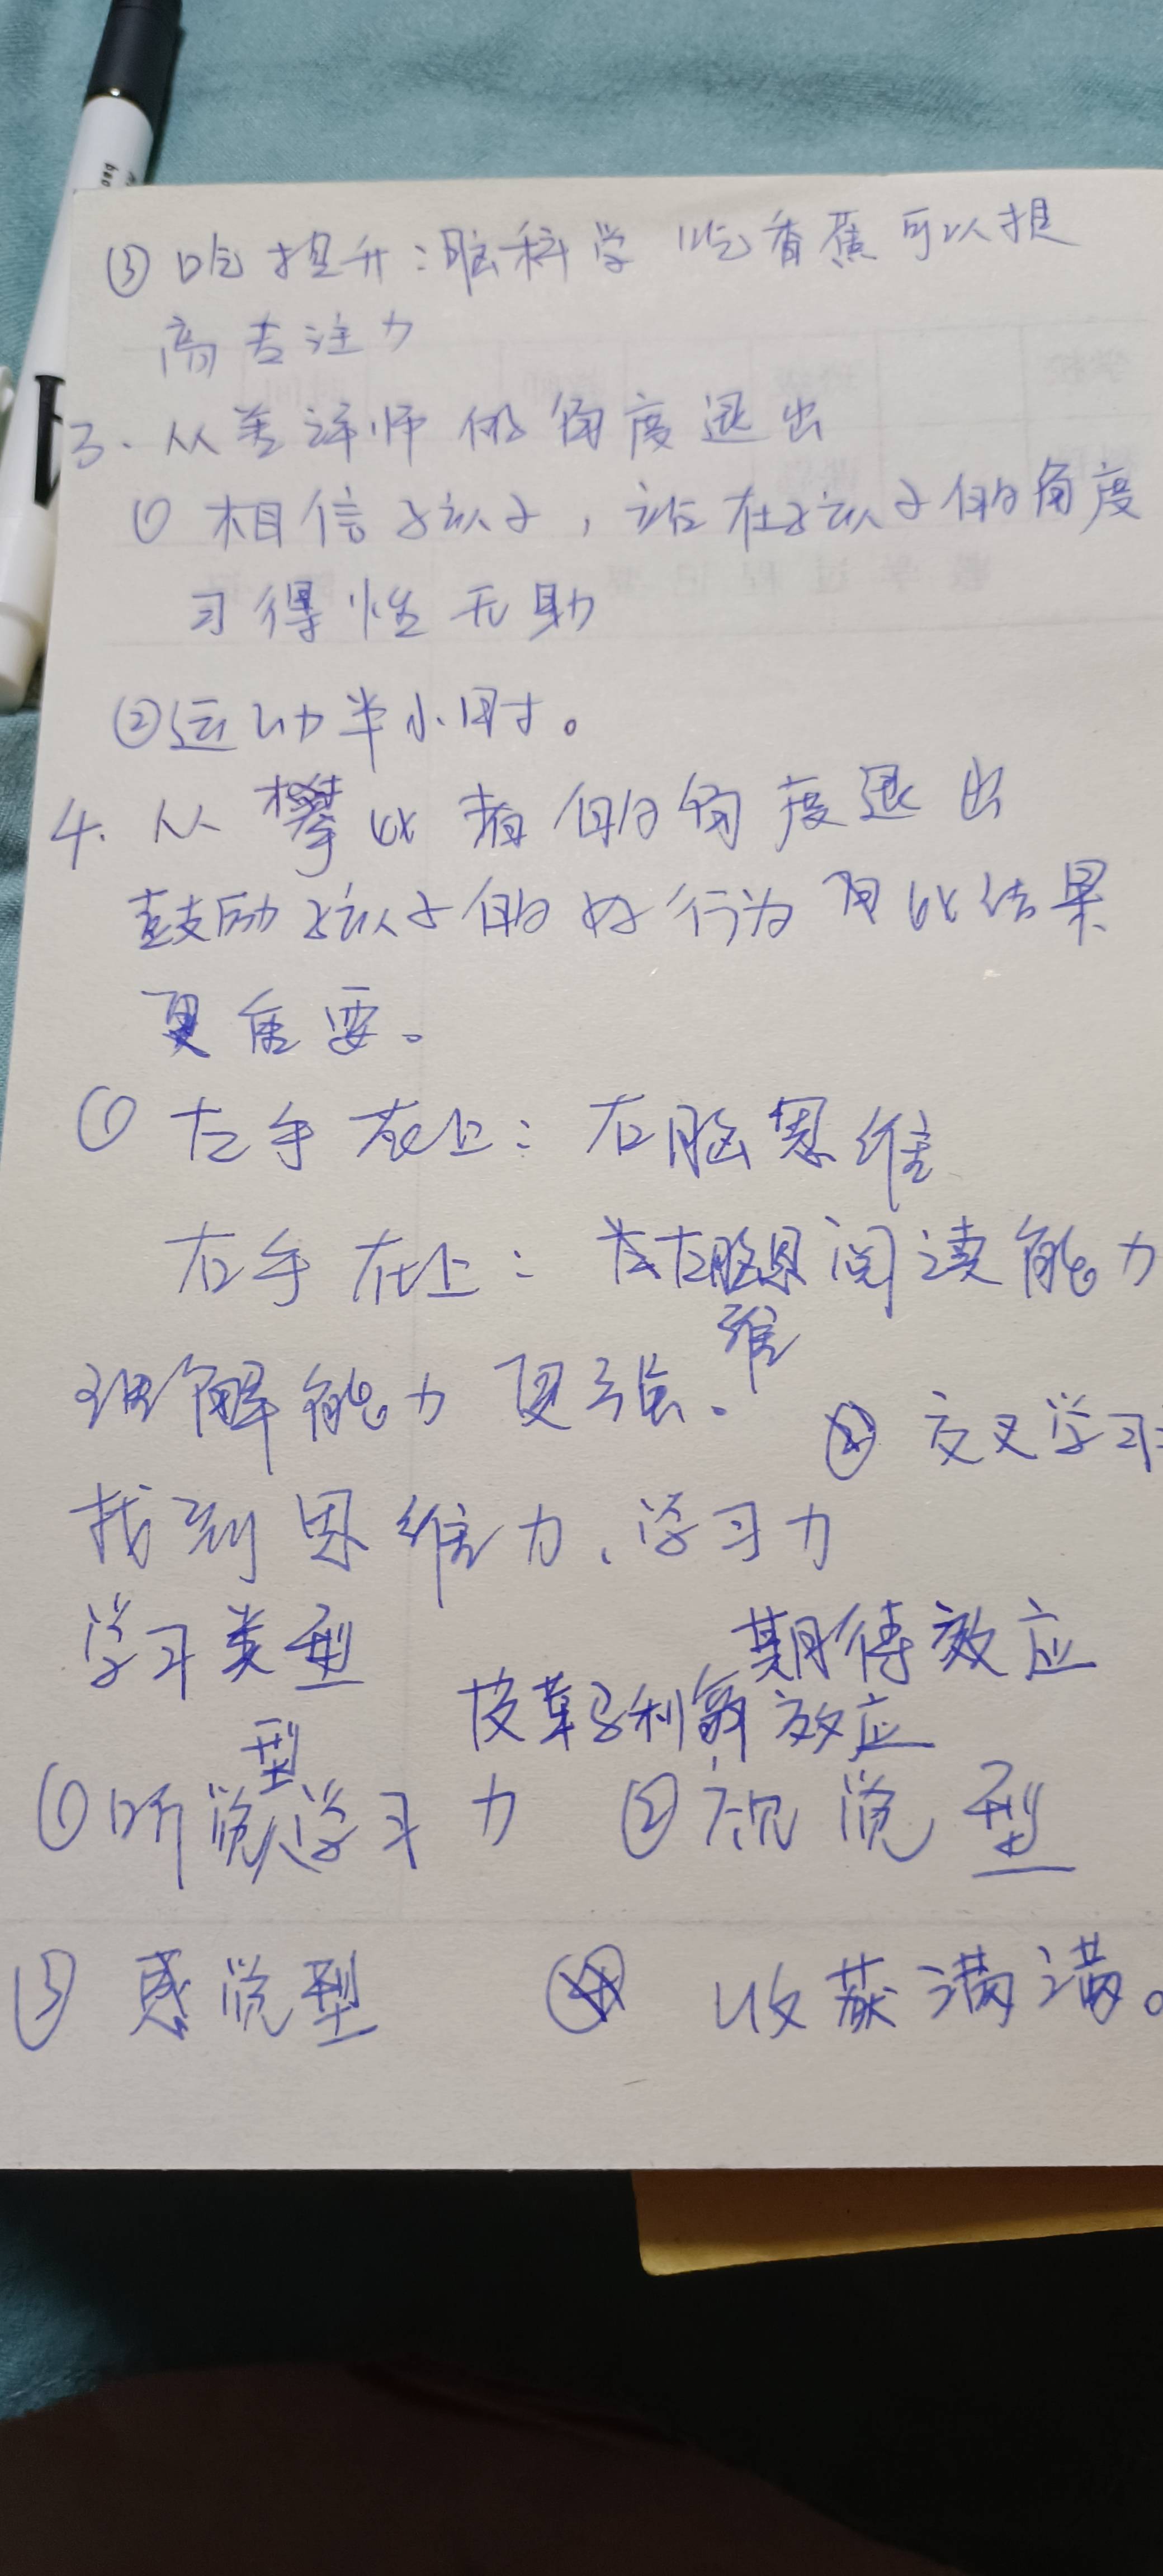 ③ 吃提升:脑科学 吃香蕉可以提
高专注力
3.从差评师的角度退出
① 相信孩子,站在孩子的角度
习得性无助
②运动半小时。
4.从攀比者的角度退出
鼓励孩子的好行为 比结果
更重要。
① 左手在上:右脑思维
右手在上:左脑思维 阅读能力
理解能力更强。
② 交叉学习
找到思维力、学习力
学习类型
期待效应
皮革马利翁效应
①听觉型学习力 ②视觉型
③ 感觉型 收获满满。